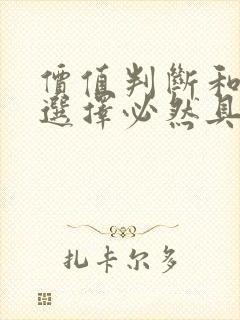 價值判斷和
選擇必然具
扎卡尔多